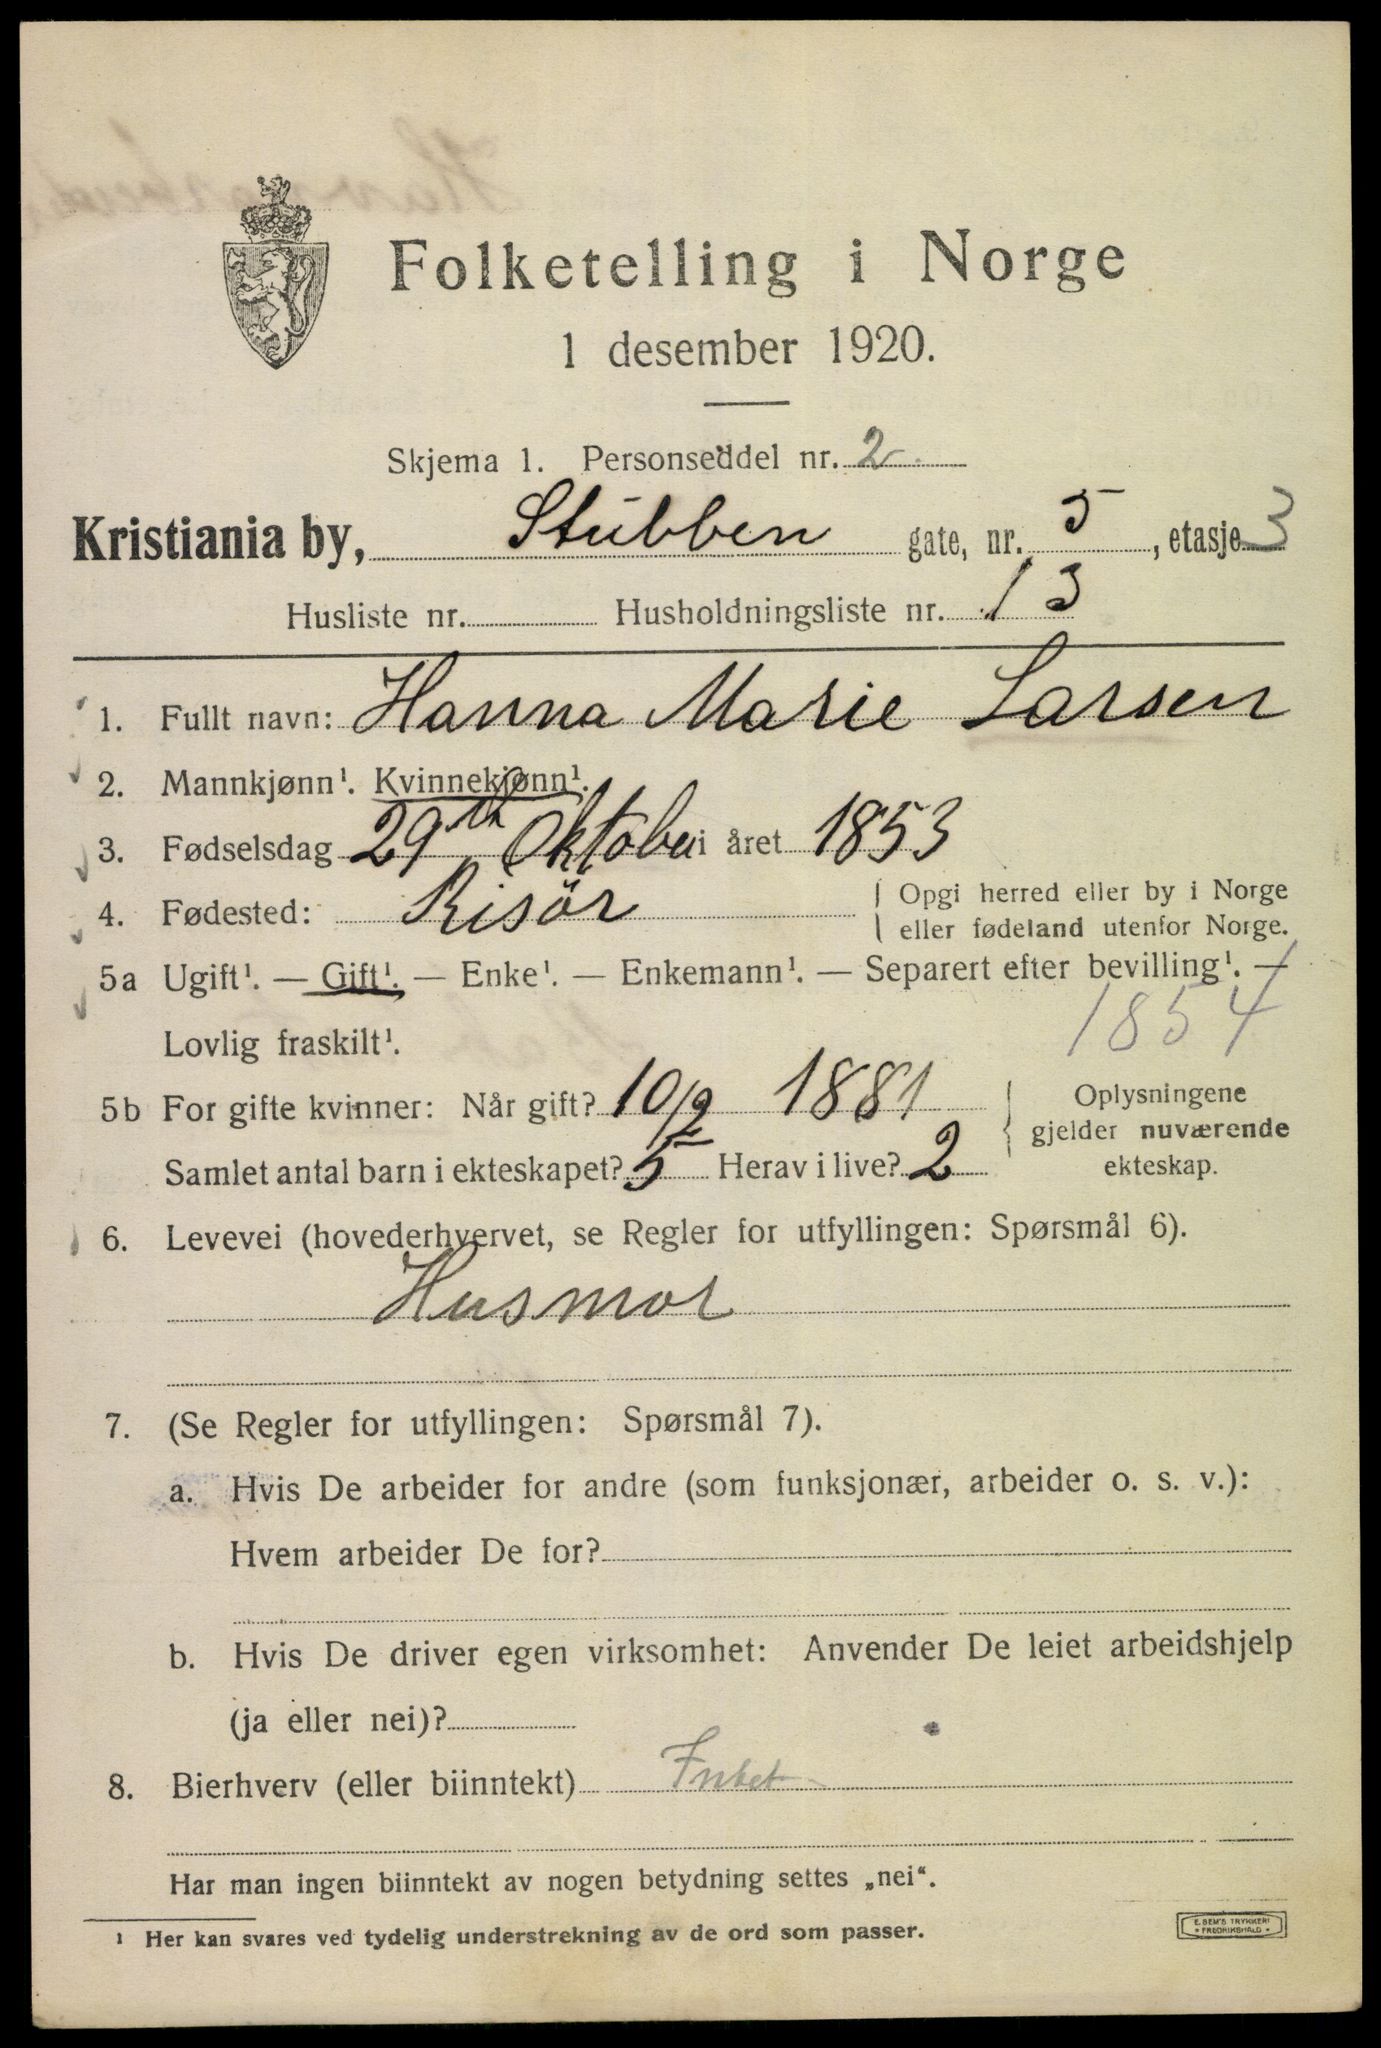 Folketelling i Norge
1 desember 1920.
Skjema 1. Personseddel nr. 2
Kristiania by, Stubben gate, nr. 5, etasje 3
Husliste nr. Husholdningsliste nr. 13
1. Fullt navn: Hanna Marie Larsen
2. Mannkjønn¹. Kvinnekjønn¹.
3. Fødselsdag 29th Oktober i året 1853
4. Fødested: Risör
Opgi herred eller by i Norge
eller fødeland utenfor Norge.
5a Ugift¹. — Gift¹. — Enke¹. — Enkemann¹. — Separert efter bevilling¹. —
Lovlig fraskilt¹.
1854
5b For gifte kvinner: Når gift? 10/2 1881
Samlet antal barn i ekteskapet? 5 Herav i live? 2
Oplysningene
gjelder nuværende
ekteskap.
6. Levevei (hovederhvervet, se Regler for utfyllingen: Spørsmål 6).
Husmor
7. (Se Regler for utfyllingen: Spørsmål 7).
a. Hvis De arbeider for andre (som funksjonær, arbeider o. s. v.):
Hvem arbeider De for?
b. Hvis De driver egen virksomhet: Anvender De leiet arbeidshjelp
(ja eller nei)?
8. Bierhverv (eller biinntekt)
Har man ingen biinntekt av nogen betydning settes „nei“.
¹ Her kan svares ved tydelig understrekning av de ord som passer.
E. SEM'S TRYKKERI
• FREDRIKSHALD •